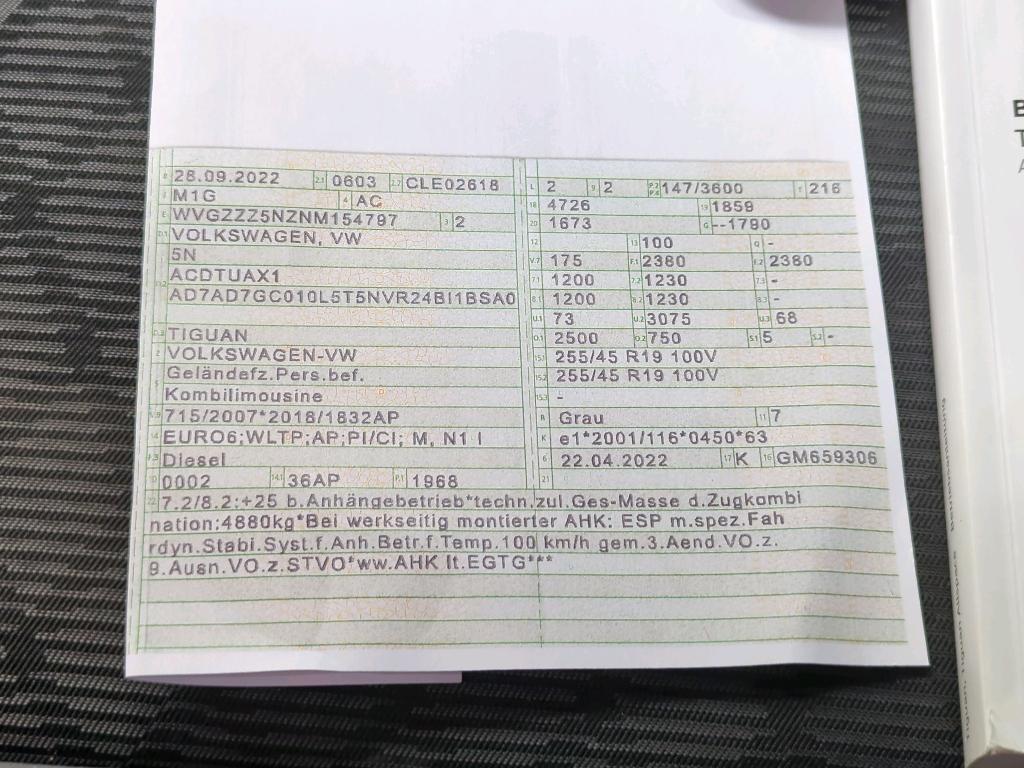 B 28.09.2022 2.1 0603 2.2 CLE02618
J M1G 4 AC
E WVGZZZ5NZNM154797 3 2
D.1 VOLKSWAGEN, VW
5N
D.2 ACDTUAX1
AD7AD7GC010L5T5NVR24BI1BSA0
D.3 TIGUAN
2 VOLKSWAGEN-VW
5 Geländefz.Pers.bef.
Kombilimousine
V.9 715/2007*2018/1832AP
14 EURO6;WLTP;AP;PI/CI; M, N1 I
P.3 Diesel
10 0002 14.1 36AP P.1 1968
L 2 9 2 P.2 P.4 147/3600 T 216
18 4726 19 1859
20 1673 G --1790
12 13 100 Q -
V.7 175 F.1 2380 F.2 2380
7.1 1200 7.2 1230 7.3 -
8.1 1200 8.2 1230 8.3 -
U.1 73 U.2 3075 U.3 68
O.1 2500 O.2 750 S.1 5 S.2 -
15.1 255/45 R19 100V
15.2 255/45 R19 100V
15.3 -
R Grau 11 7
K e1*2001/116*0450*63
6 22.04.2022 17 K 16 GM659306
21
22 7.2/8.2:+25 b.Anhängebetrieb*techn.zul.Ges-Masse d.Zugkombi
nation:4880kg*Bei werkseitig montierter AHK: ESP m.spez.Fah
rdyn.Stabi.Syst.f.Anh.Betr.f.Temp.100 km/h gem.3.Aend.VO.z.
9.Ausn.VO.z.STVO*ww.AHK lt.EGTG***
B
T
A
Tiguan, Tiguan Allspace Betriebsanleitung